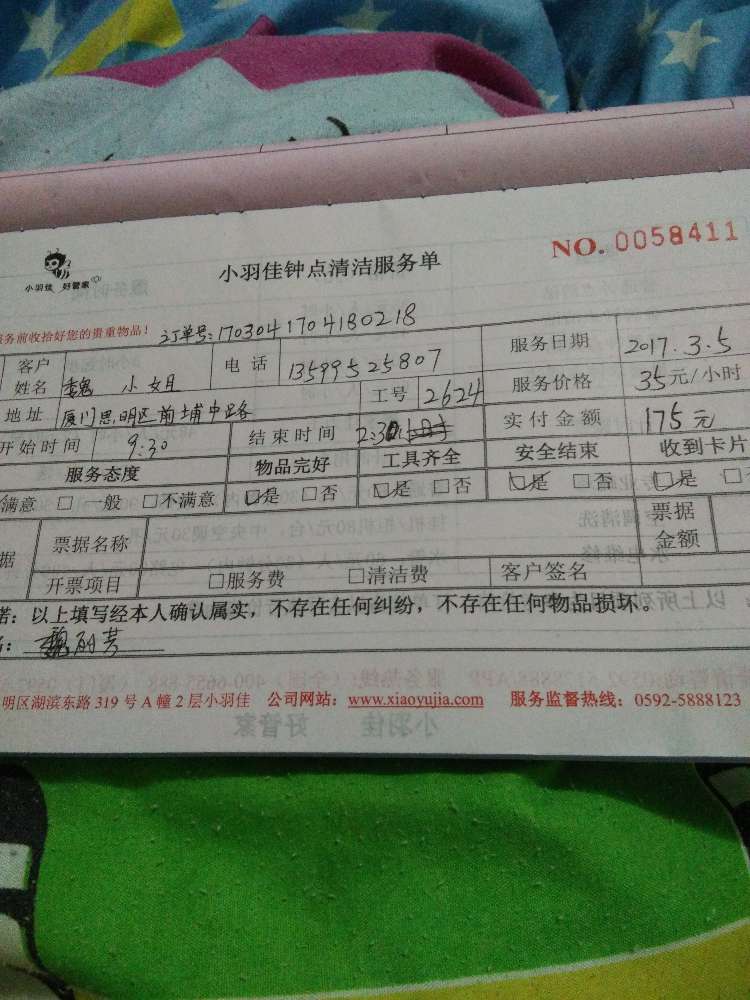 NO. 0058411
小羽佳 好管家
小羽佳钟点清洁服务单
务前收拾好您的贵重物品! 订单号: 1703041704180218
客户姓名 魏 小姐 电 话 13599525807 服务日期 2017.3.5
地 址 厦门思明区前埔中路 工号 2624 服务价格 35元/小时
开始时间 9:30 结束时间 2:30 实付金额 175元
服务态度 物品完好 工具齐全 安全结束 收到卡片
满意 □一般 □不满意 □是 □否 □是 □否 □是 □否 □是 □
据 票据名称 票据金额
开票项目 □服务费 □清洁费 客户签名
诺: 以上填写经本人确认属实, 不存在任何纠纷, 不存在任何物品损坏。
: 魏丽芳
明区湖滨东路 319 号 A 幢 2 层小羽佳 公司网站: www.xiaoyujia.com 服务监督热线: 0592-5888123